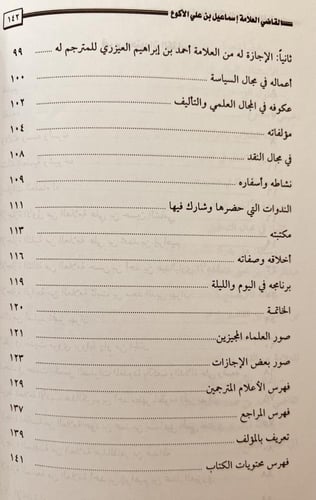 لقاضي العلامة إسماعيل بن علي الأكوع ١٤٢
ثانياً: الإجازة له من العلامة أحمد بن إبراهيم العيزري للمترجم له ٩٩
أعماله في مجال السياسة ١٠٠
عكوفه في المجال العلمي والتأليف ١٠٢
مؤلفاته ١٠٤
في مجال النقد ١٠٨
نشاطه وأسفاره ١٠٩
الندوات التي حضرها وشارك فيها ١١١
مكتبته ١١٣
أخلاقه وصفاته ١١٦
برنامجه في اليوم والليلة ١١٩
الخاتمة ١٢٠
صور العلماء المجيزين ١٢١
صور بعض الإجازات ١٢٣
فهرس الأعلام المترجمين ١٢٩
فهرس المراجع ١٣٧
تعريف بالمؤلف ١٣٩
فهرس محتويات الكتاب ١٤١